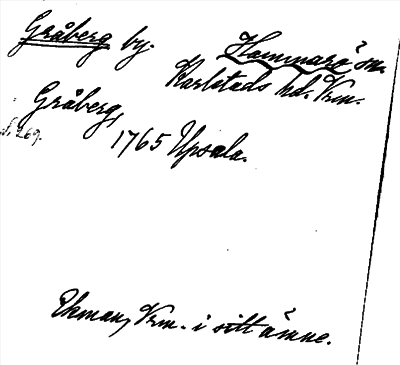 Gråberg by. Hammarö sn.
Karlstads hd. Vrm.
Gråberg,
s. 269.
1765 Upsala.
Ekman, Vrm. i sitt ämne.